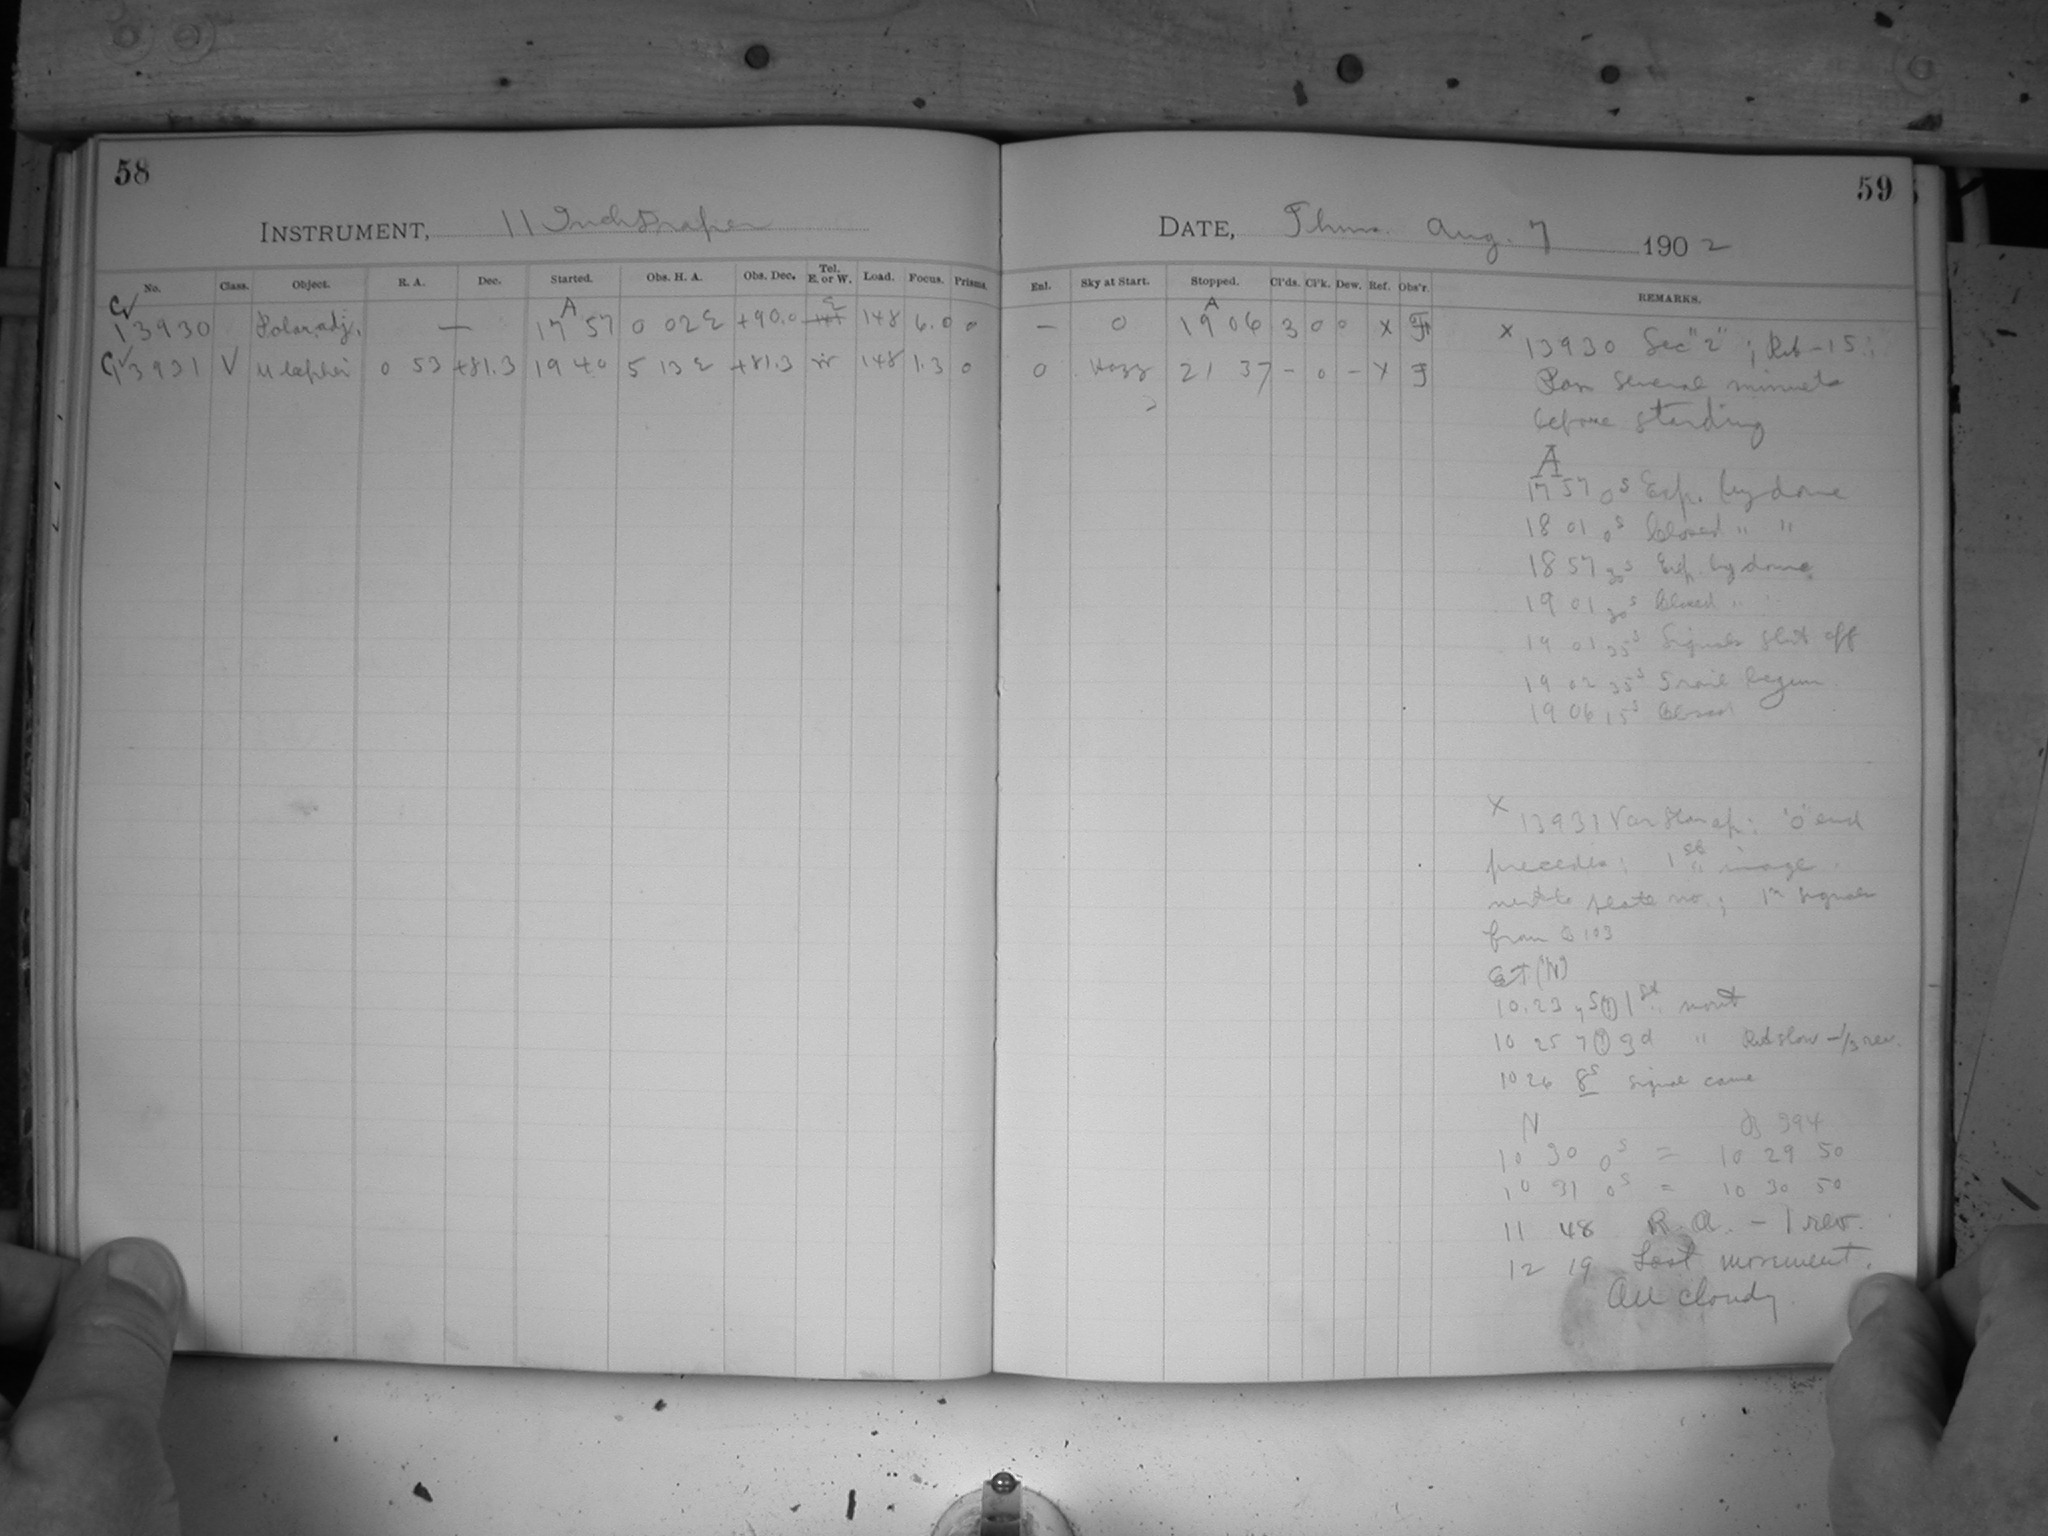 58
INSTRUMENT, 11 Inch Draper
No. Class. Object. R. A. Dec. Started. Obs. H. A. Obs. Dec. Tel. E. or W. Load. Focus. Prisms.
13930 Polar adj. — A 17 57 0 02 E +90.0 E 148 6.0 0
13931 V U Cephei 0 53 +81.3 19 40 5 13 E +81.3 W 148 1.3 0
59
DATE, Thurs. Aug. 7 1902
Enl. Sky at Start. Stopped. Cl'ds. Cl'k. Dew. Ref. Obs'r. REMARKS.
— 0 A 19 06 3 0 0 X Fr
0 Hazy 21 37 – 0 – X F
2
X 13930 Sec "2"; Rit –15;
Ran several minutes
before starting
A
17 57 0s Exp. by dome
18 01 0s Closed " "
18 57 30s Exp. by dome
19 01 30s Closed " "
19 01 35s Signals shut off
19 02 35s Trail begun
19 06 15s Closed
X 13931 Var Star ap; '0' end
precedes; 1st image
next to plate no.; 1m signals
from 103
(N)
10 23 1st movt
10 25 7 3d " Rit slow –1/3 rev.
10 26 8s signal came
N 394
10 30 0s = 10 29 50
10 31 0s = 10 30 50
11 48 R.A. – 1 rev.
12 19 Last movement.
All cloudy.